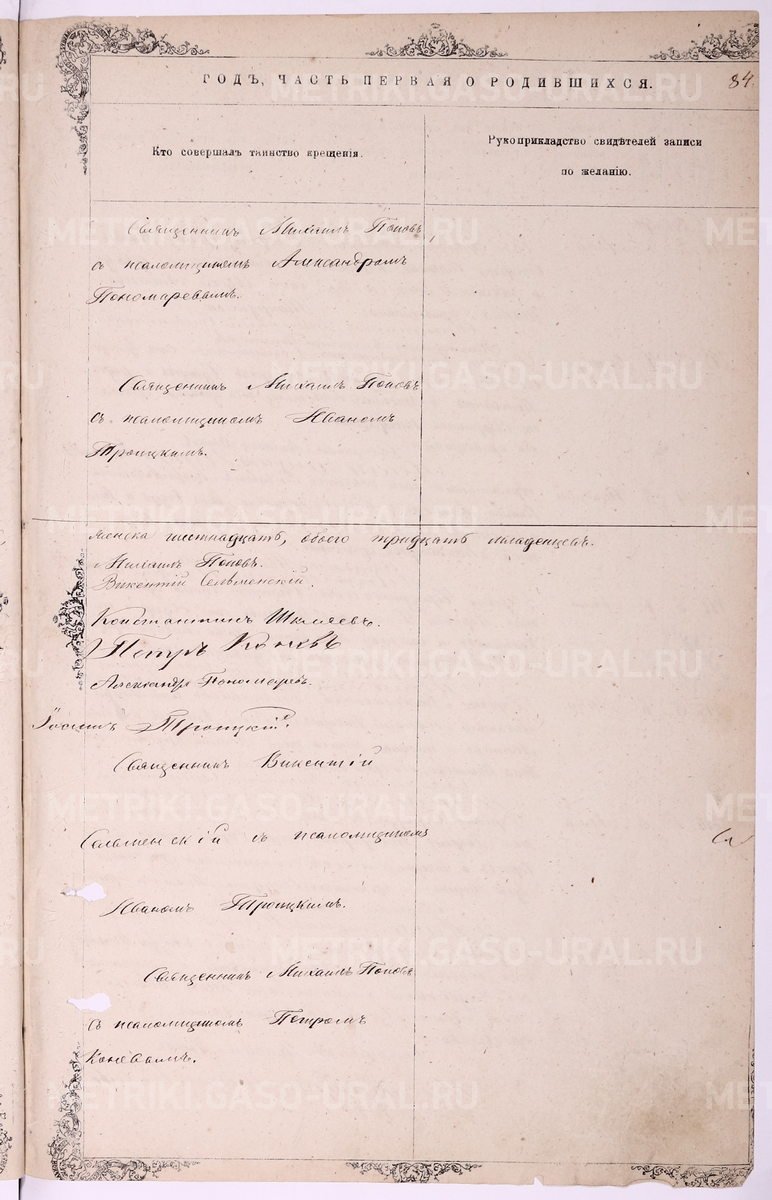 ГОДЪ, ЧАСТЬ ПЕРВАЯ О РОДИВШИХСЯ.
84.
Кто совершалъ таинство крещенія.
Рукоприкладство свидѣтелей записи
по желанію.
Священникъ Михаилъ Поповъ
съ псаломщикомъ Александромъ
Пономаревымъ.
Священникъ Михаилъ Поповъ
съ псаломщикомъ Иваномъ
Троицкимъ.
женска шестнадцать, обоего тридцать младенцевъ.
Михаилъ Поповъ.
Викентій Сельменскій.
Константинъ Шкляевъ.
Петръ Коневъ
Александръ Пономаревъ.
Іоаннъ Троицкій.
Священникъ Викентій
Сельменскій съ псаломщикомъ
Иваномъ Троицкимъ.
Священникъ Михаилъ Поповъ
съ псаломщикомъ Петромъ
Коневымъ.
METRIKI.GASO-URAL.RU